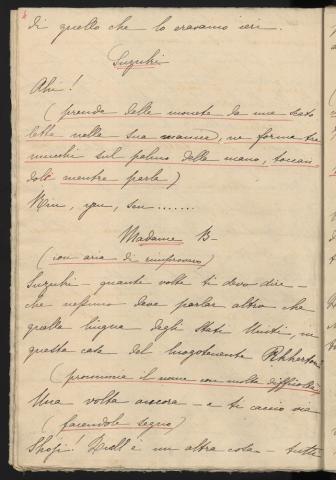 di quello che lo eravamo ieri.
Suzuki
Ahi!
(prende delle monete da una scato
letta nella sua manica, ne forma tre
mucchi sul palmo della mano, toccan
doli mentre parla)
Nin, you, sen.......
Madame B-
(con aria di rimprovero)
Suzuki – quante volte ti devo dire –
che nessuno deve parlar altro che
quella lingua degli Stati Uniti, in
questa casa del luogotenente
(pronuncia il nome con molta difficoltà)
Una volta ancora – e ti caccio via
(facendole segno)
un altra cosa – tutte